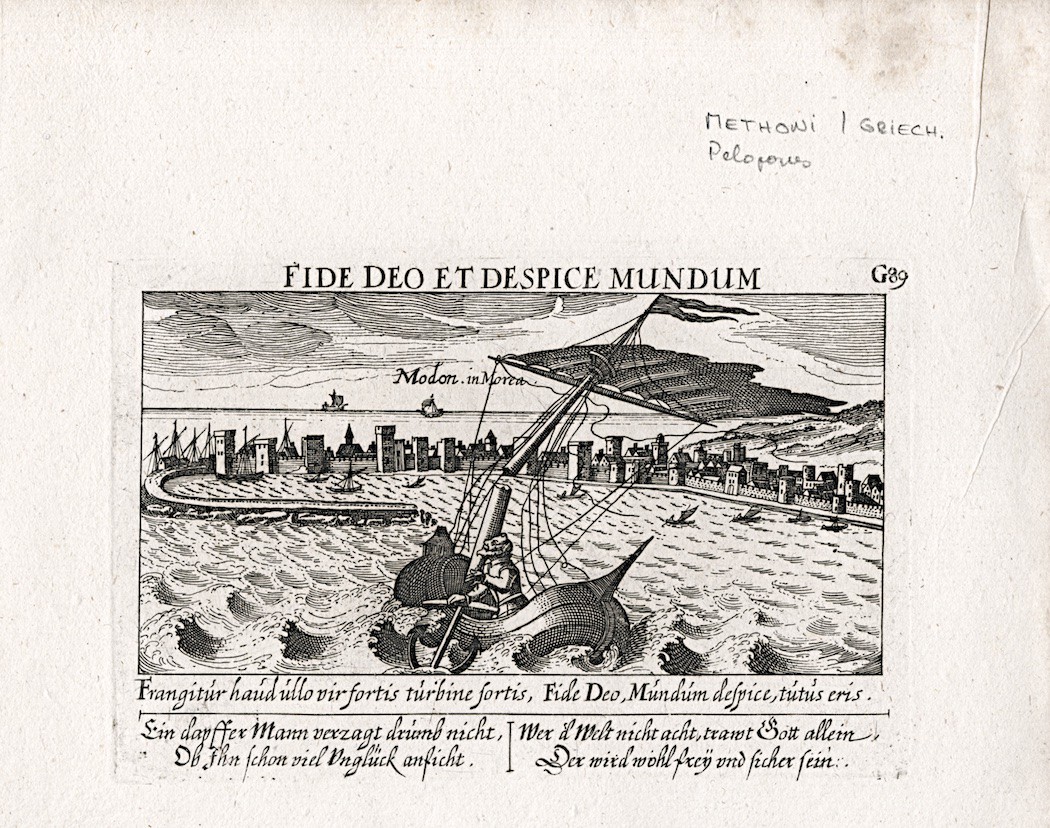 METHONI / GRIECH.
Pelopones
FIDE DEO ET DESPICE MUNDUM
G89
Modon. in Morea.
Frangitur haud ullo vir fortis turbine fortis, Fide Deo, Mundum despice, tutus eris.
Ein dapffer Mann verzagt drumb nicht, Wer d Welt nicht acht, trawt Gott allein,
Ob Ihn schon viel Unglück anficht. Der wird wohl frey vnd sicher sein.